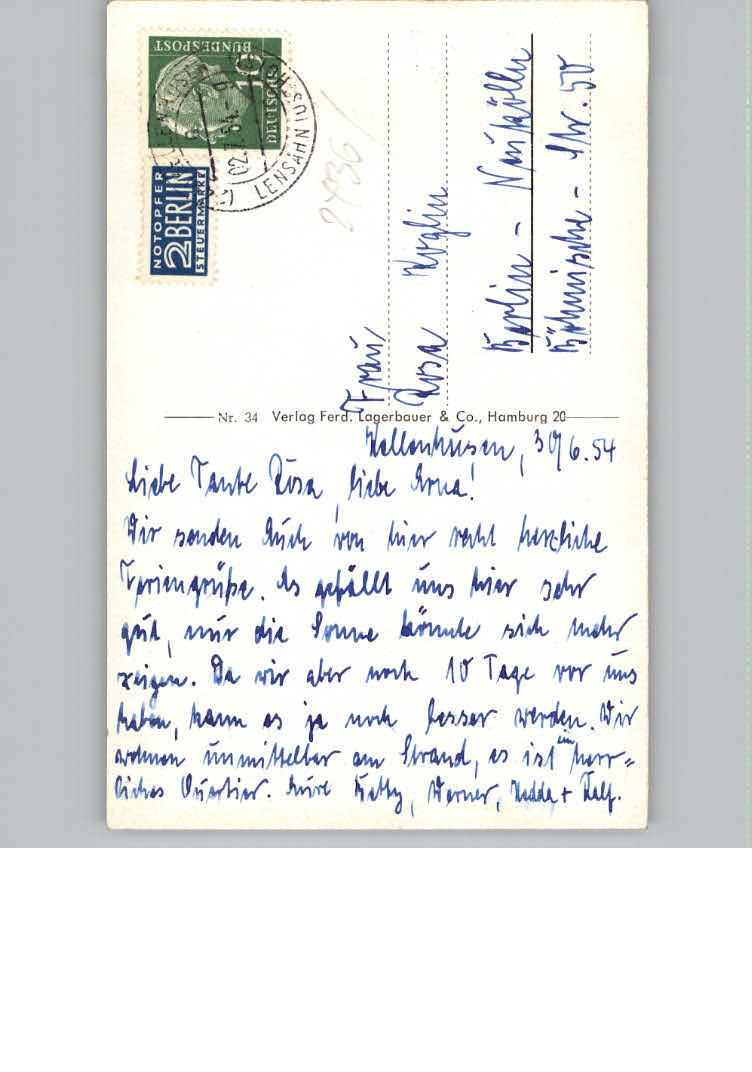 DEUTSCHE
BUNDESPOST
10
LENSAHN
02.7.54.-
NOTOPFER
2 BERLIN
STEUERMARKE
Frau
Rosa
Berlin - Neukölln
Böhmische - Str. 50
Nr. 34 Verlag Ferd. Lagerbauer & Co., Hamburg 20
Kellenhusen, 30/6.54
Liebe Tante Rosa, liebe Erna!
Wir senden Euch von hier recht herzliche
Feriengrüße. Es gefällt uns hier sehr
gut, nur die Sonne könnte sich mehr
zeigen. Da wir aber noch 10 Tage vor uns
haben, kann es ja noch besser werden. Wir
wohnen unmittelbar am Strand, es ist ein herr-
liches Quartier. Eure Betty, Werner, Hedda + Ralf.